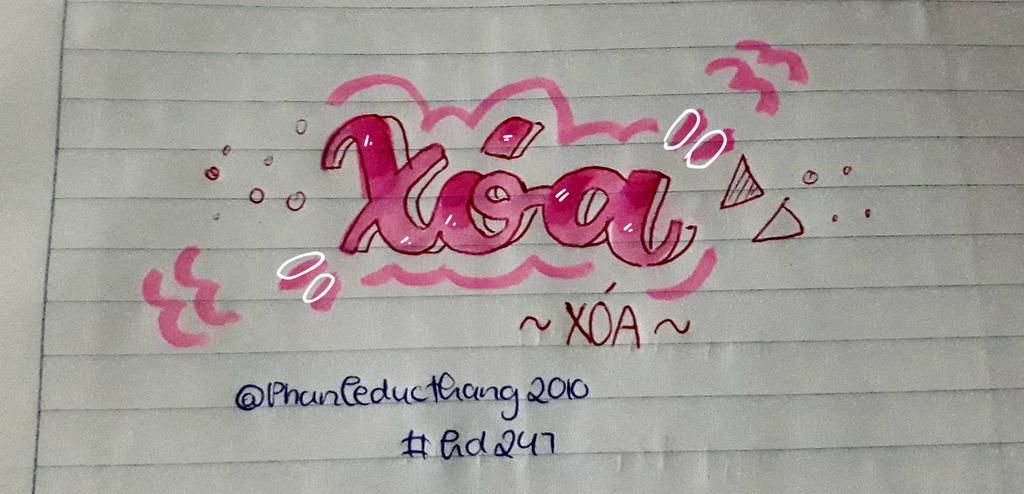 Xóa
~ XÓA ~
@Phanleducthang2010
#hd247